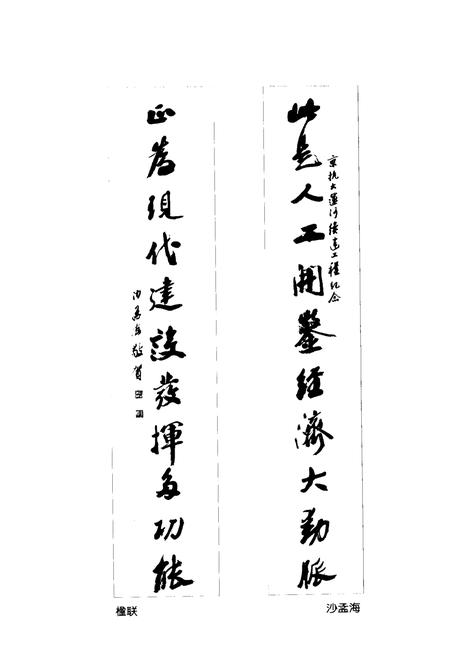 京杭大運河續建工程紀念
此是人工開鑿經濟大動脈
正為現代建設發揮多功能
沙孟海敬賀
楹联
沙孟海